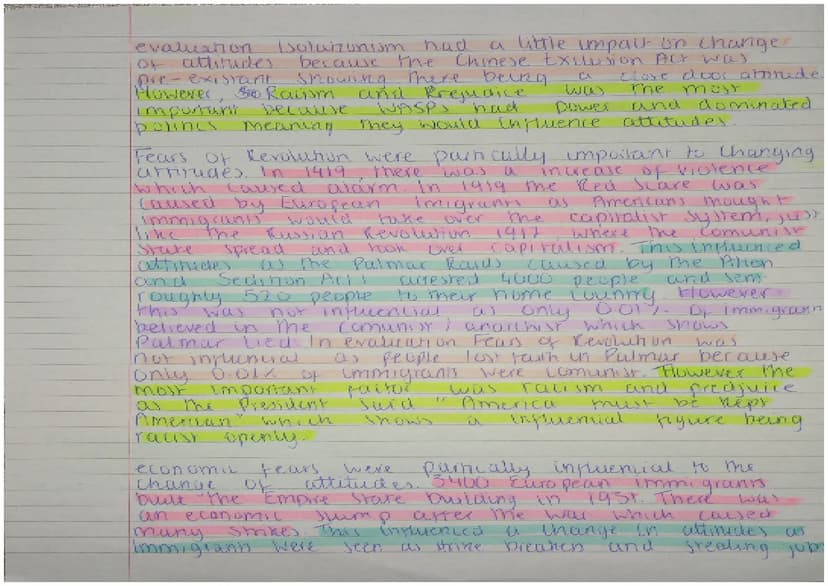 evaluation Isolaizonism had a little impact on change
of attitudes because the Chinese Exclusion Act was
pre-existant showing there being a close door attitude.
However, Racism and Prejudice was the most
important because WASPs had power and dominated
politics meaning they would influence attitudes.
Fears of Revolution were partically important to changing
attitudes. In 1919, there was a increase of violence
which caused alarm. In 1919 the Red Scare was
caused by European imigrants as Americans thought
immigrants would take over the capitalist system, just
like the Russian Revolution 1917, where the comunist
state spread and took over capitalism. This influenced
attitudes as the Palmar Raids caused by the Alien
and Sedition Acts arrested 4000 people and sent
roughly 520 people to their home country. However
this was not influential as only 0.01% of immigrants
believed in the comunist/anarchist which shows
Palmar lied. In evaluation Fears of Revolution was
not influential as people lost faith in Palmar because
only 0.01% of immigrants were comunist. However the
most important factor was racism and predjuice
as the President said "America must be kept
American" which shows a influential figure being
racist openly.
economic fears were partically influential to the
change of attitudes. 3400 European immigrants
built the Empire State building in 1931. There was
an economic slump after the war which caused
many strikes. This influenced a change in attitudes as
immigrants were seen as strike breakers and stealing jobs